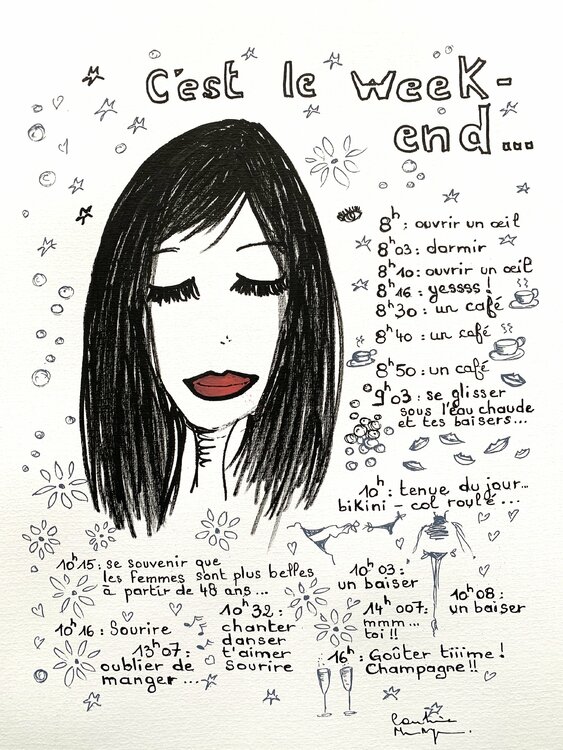 C'est le week-
end...
8h : ouvrir un œil
8h03 : dormir
8h10 : ouvrir un œil
8h16 : yessss !
8h30 : un café
8h40 : un café
8h50 : un café
9h03 : se glisser
sous l'eau chaude
et tes baisers...
10h : tenue du jour...
bikini - col roulé...
10h15 : se souvenir que
les femmes sont plus belles
à partir de 48 ans...
10h03 :
un baiser
10h08 :
un baiser
10h16 : Sourire
10h32 :
chanter
danser
t'aimer
Sourire
14h007 :
mmm...
toi !!
13h07 :
oublier de
manger...
16h : Goûter tiiime !
Champagne !!